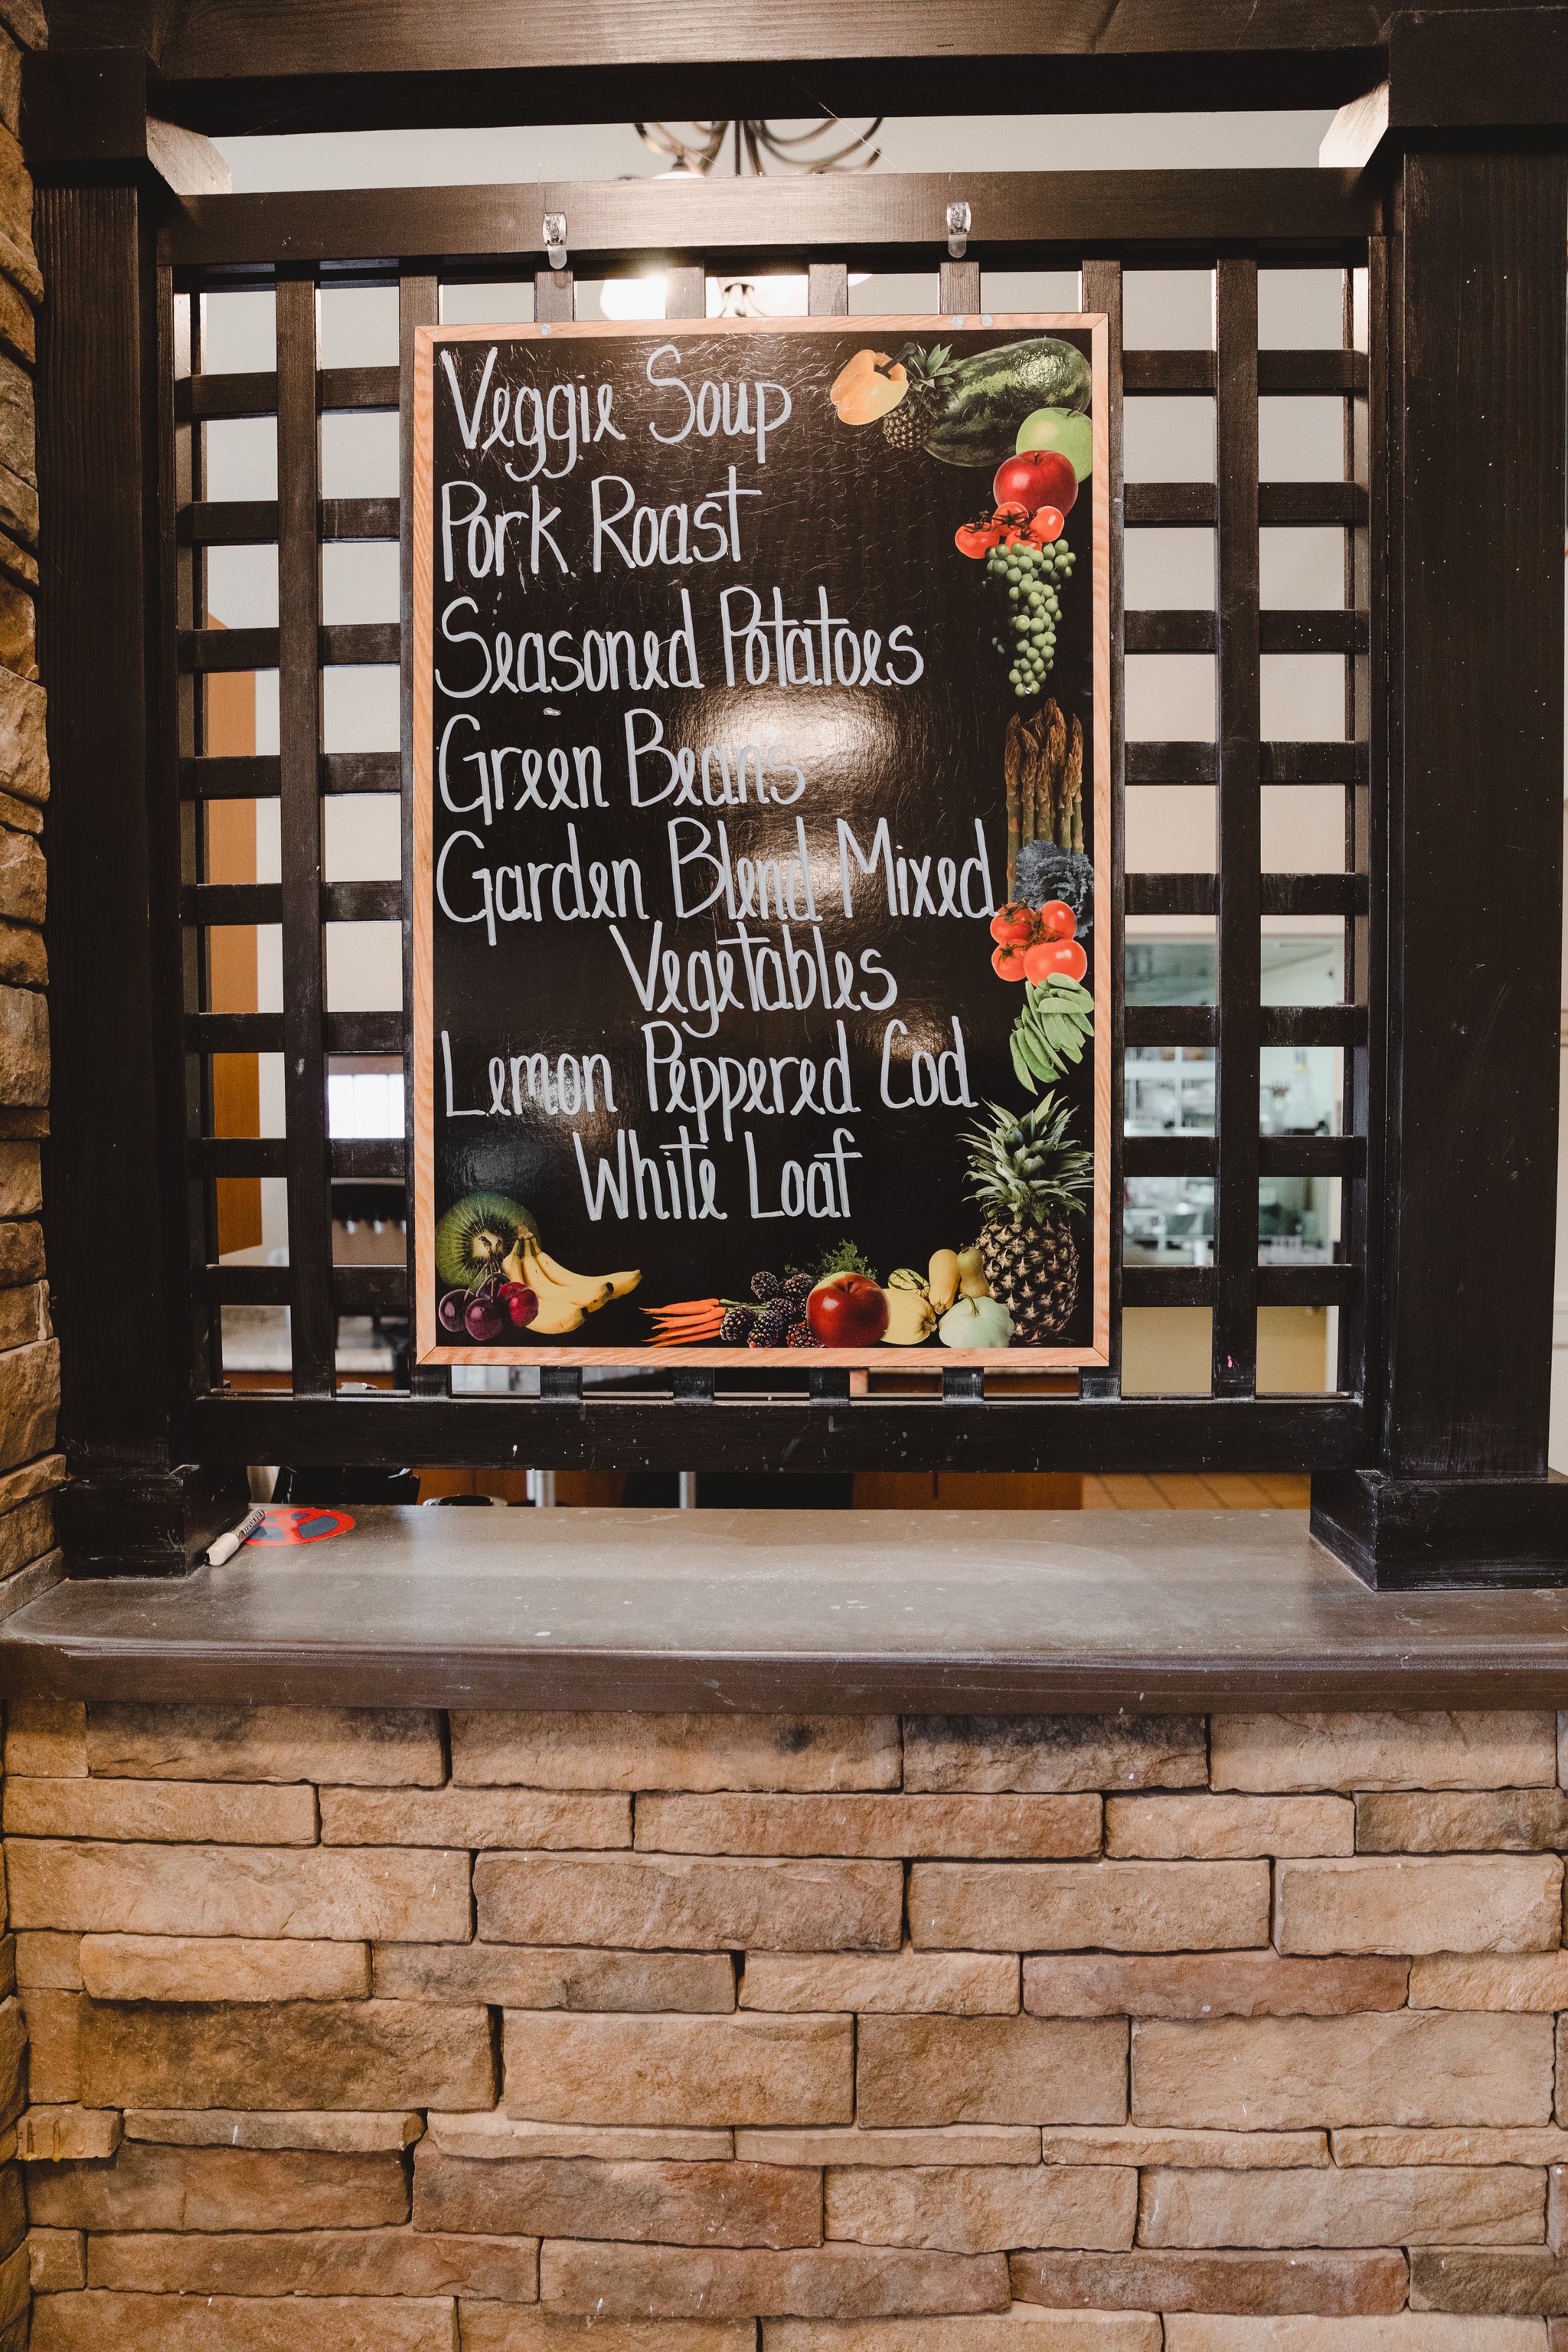 Veggie Soup
Pork Roast
Seasoned Potatoes
Green Beans
Garden Blend Mixed
Vegetables
Lemon Peppered Cod
White Loaf